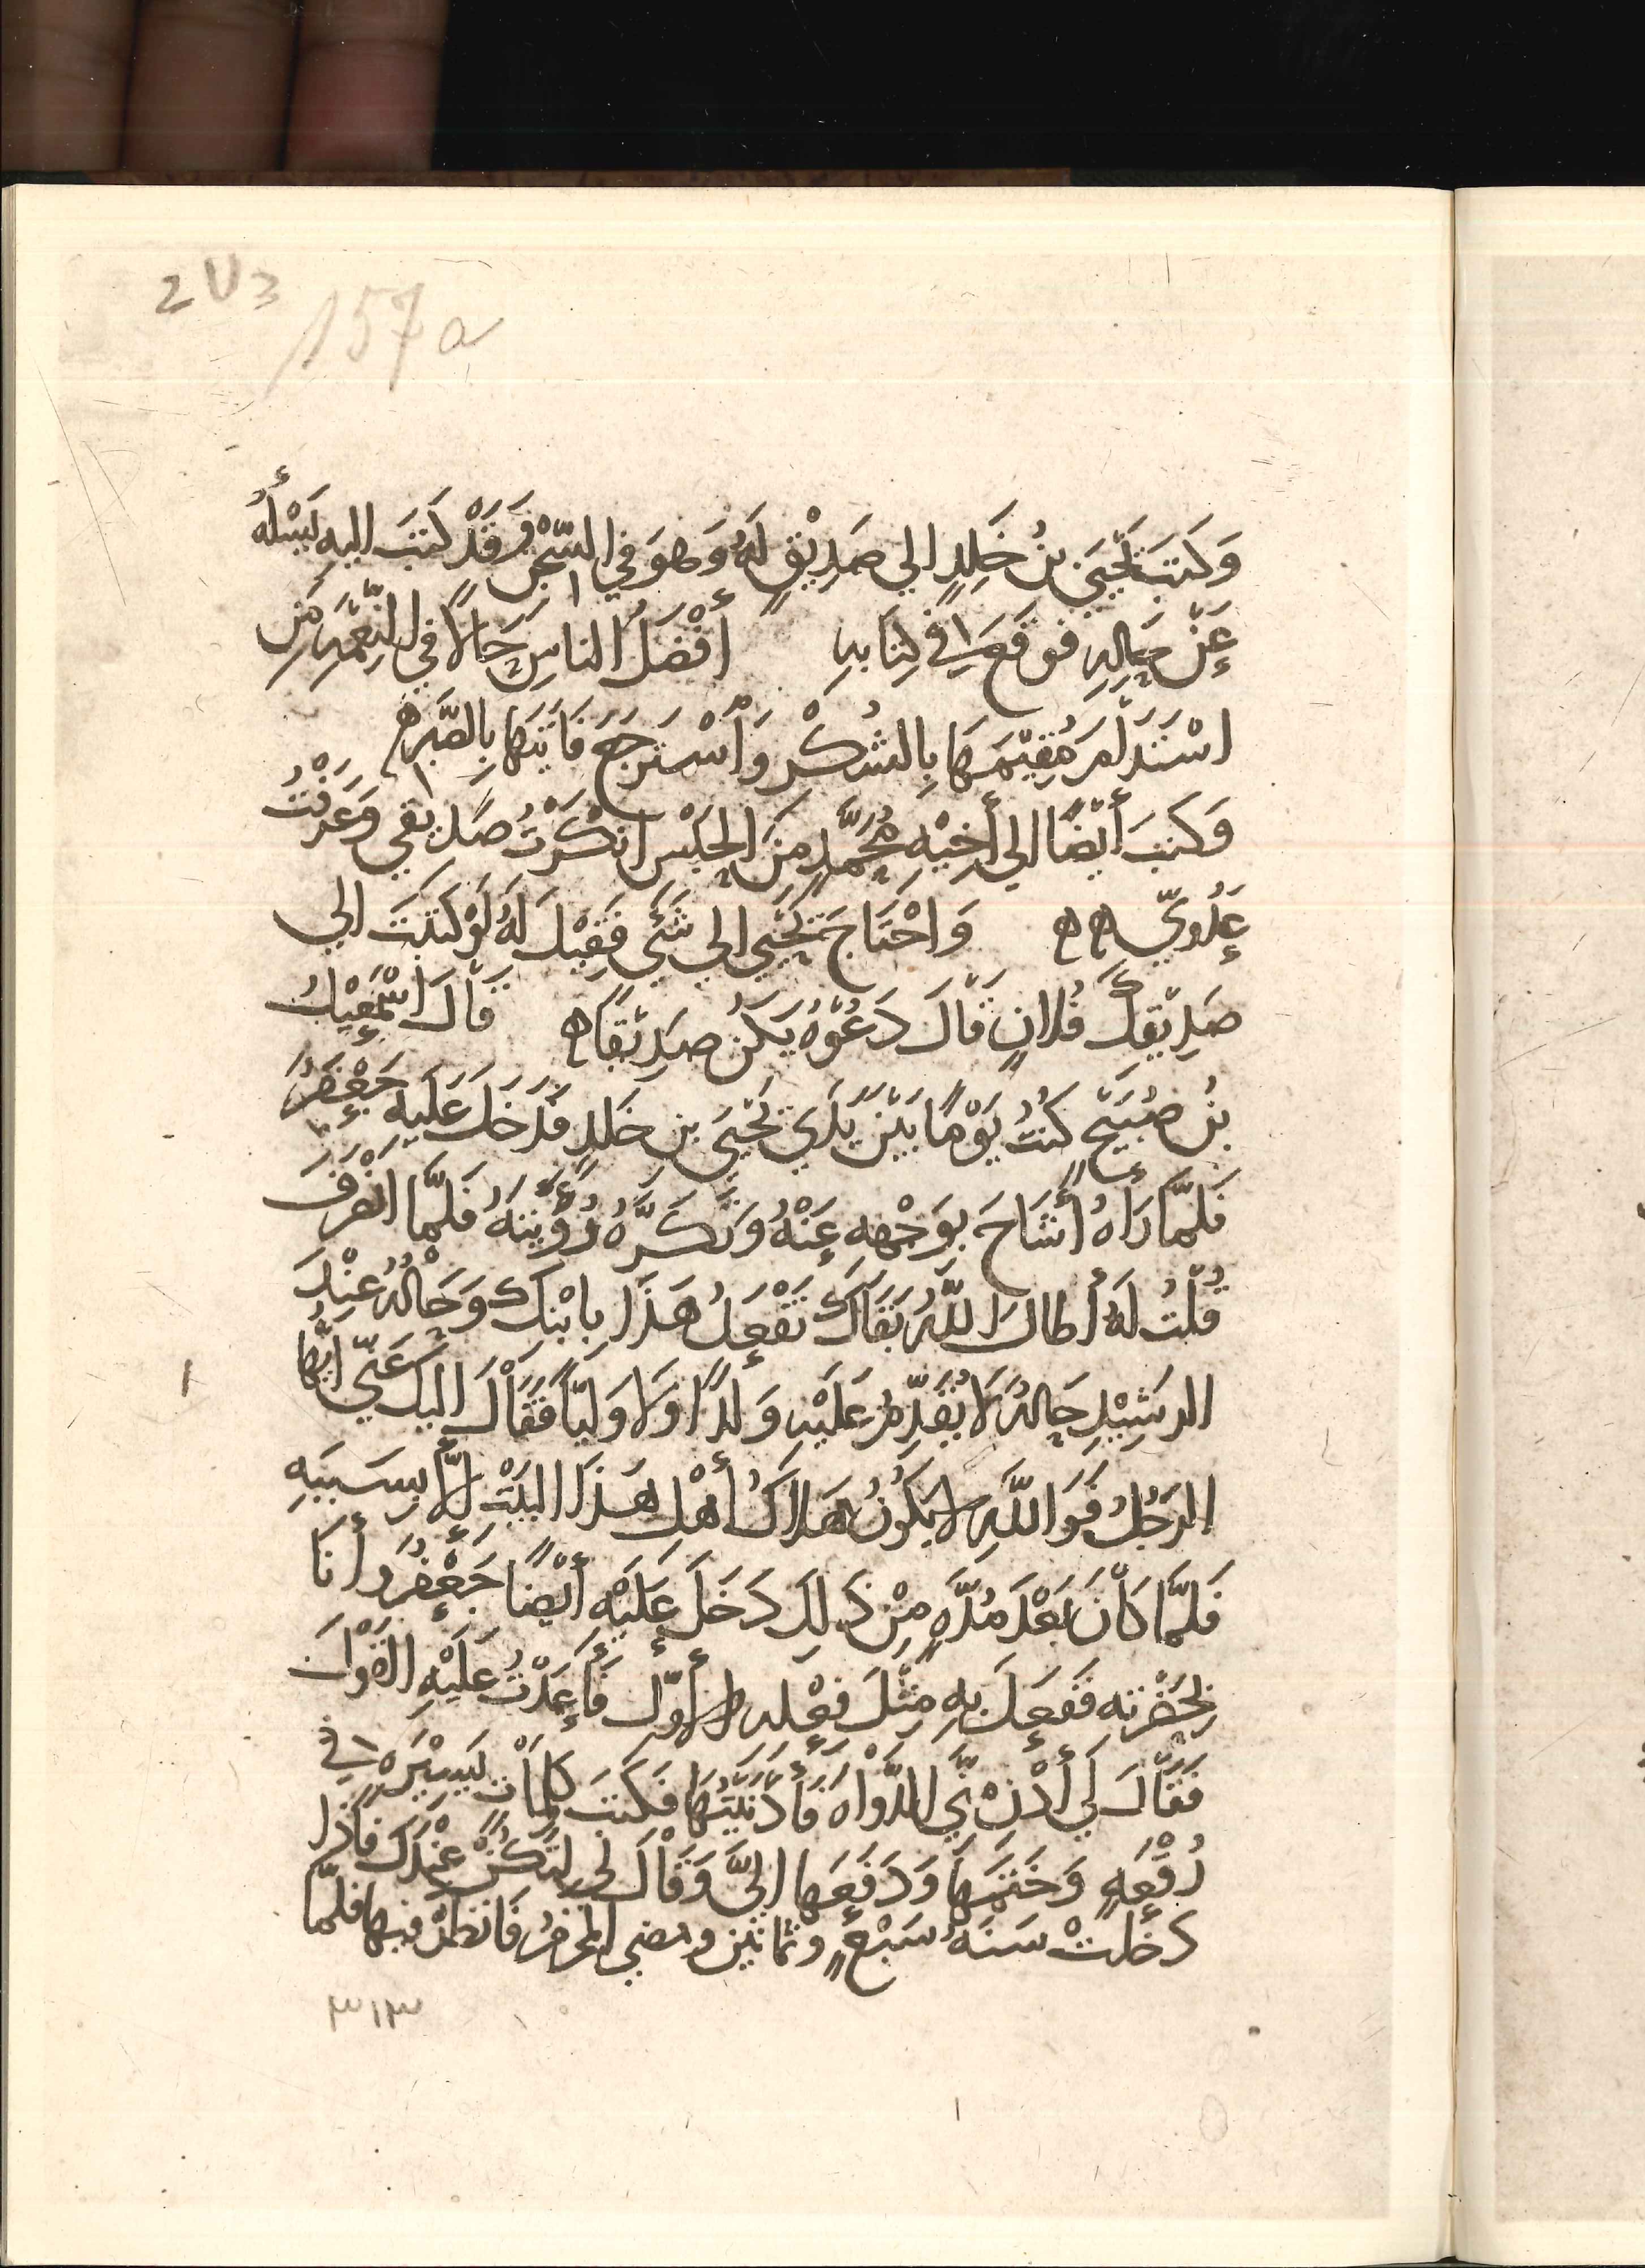 2V3
157a
وَكَتَبَ يَحْيَى بنُ خَلِدٍ الي صَدِيْقٍ لَهُ وَهوَ فِي السِّجْنِ وَقَدْ كَتَبَ اليهِ يَسْأَلُهُ
عَنْ حَالِهِ فوقعَ في كِتَابهِ أفْضَلُ الناسِ حَالًا فِي النِّعْمَهِ مَنِ
اسْتَدَامَ مُقِيْمَهَا بِالشُكْرِ وَاسْتَرجَعَ فَايتَهَا بِالصَّبْرِ ه
وَكتبَ أيْضًا الي أخِيْهِ مُحَمَّدٍ مِنَ الحَبْسِ انْكَرْتُ صَدِيقي وَعَرَفْتُ
عَدُويّ ه ه وَاحْتَاجَ يَحْيَى الي شَئٍ فَقِيْلَ لَهُ لَوْ كتَبْتَ الي
صَدِيْقِكَ فُلانٍ قَالَ دَعُوْهُ يَكُنْ صَدِيْقًا ه قَالَ اسْمَعِيْلُ
بنُ صُبَيْحٍ كُنْتُ يَوْمًا بَيْنَ يَدَي يَحْيَى بنِ خَلِدٍ فَدَخَلَ عَلَيهِ جَعْفَرُ
فَلَمَّا رَاهُ أشَاحَ بوَجْههِ عَنْهُ وَتَكَرَّهَ رُؤْيتَهُ فَلمَّا انْصَرَفَ
قُلْتُ لَهُ أطَالَ اللَّهُ بَقَاكَ تَفْعَلُ هَذَا بِابْنِكَ وَحَالُهُ عِنْدَ
الرشِيْدِ حَالهُ لَا يُقَدِّمُ عَلَيْهِ وَلَدًا وَلَا وَليًّا فَقَالَ اليكَ عَنِّي ايُّهَا
الرَجُلُ فَوَ اللَّهِ لا يَكُونُ هَلاكُ أهْلِ هَذَا البَيْتِ الَّا بسَبَبهِ
فَلَمَّا كَانَ بَعْدَ مُدَّهٍ مِنْ ذَلِكَ دَخَلَ عَلَيْهِ أيْضًا جَعْفَرُ وَأنَا
بِحَضْرتهِ فَفَعَلَ بهِ مِثْلَ فِعْلهِ الأوّلِ فَأعَدْتُ عَلَيْهِ القَوْلَ
فَقَالَ لِي أدْنِ مِنِّي الدَّوَاهَ فَأدْنَيْتُهَا فَكتبَ كلمَات يَسِيْرَهً في
رُقْعَهٍ وَخَتَمَهَا وَدَفَعَهَا اليَّ وَقَالَ لي لِتَكُنْ عِنْدَكَ فَاذا
دَخلَتْ سَنَهُ سَبْعٍ وثمانين ومضي المحرمُ فَانظرْ فيها فلمَّا
٣١٣